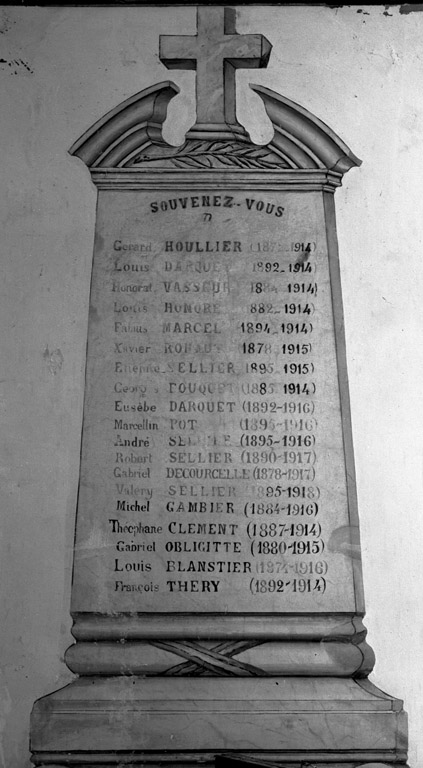 SOUVENEZ-VOUS
Gerard HOULLIER 1914)
Louis DARQUET 1892-1914
Honorat VASSEUR 1914)
Louis HONORE 882-1914)
Fabius MARCEL 1894-1914)
Xavier 1878 1915)
Etienne SELLIER 1895 1915)
Georges FOUQUET (1885 1914)
Eusèbe DARQUET (1892-1916)
Marcellin POT (1896-1916)
André (1895-1916)
Robert SELLIER (1890-1917)
Gabriel DECOURCELLE (1878-1917)
Valéry SELLIER 1895-1918)
Michel GAMBIER (1884-1916)
Théophane CLEMENT (1887-1914)
Gabriel OBLIGITTE (1880-1915)
Louis BLANSTIER (1874-1916)
François THERY (1892-1914)